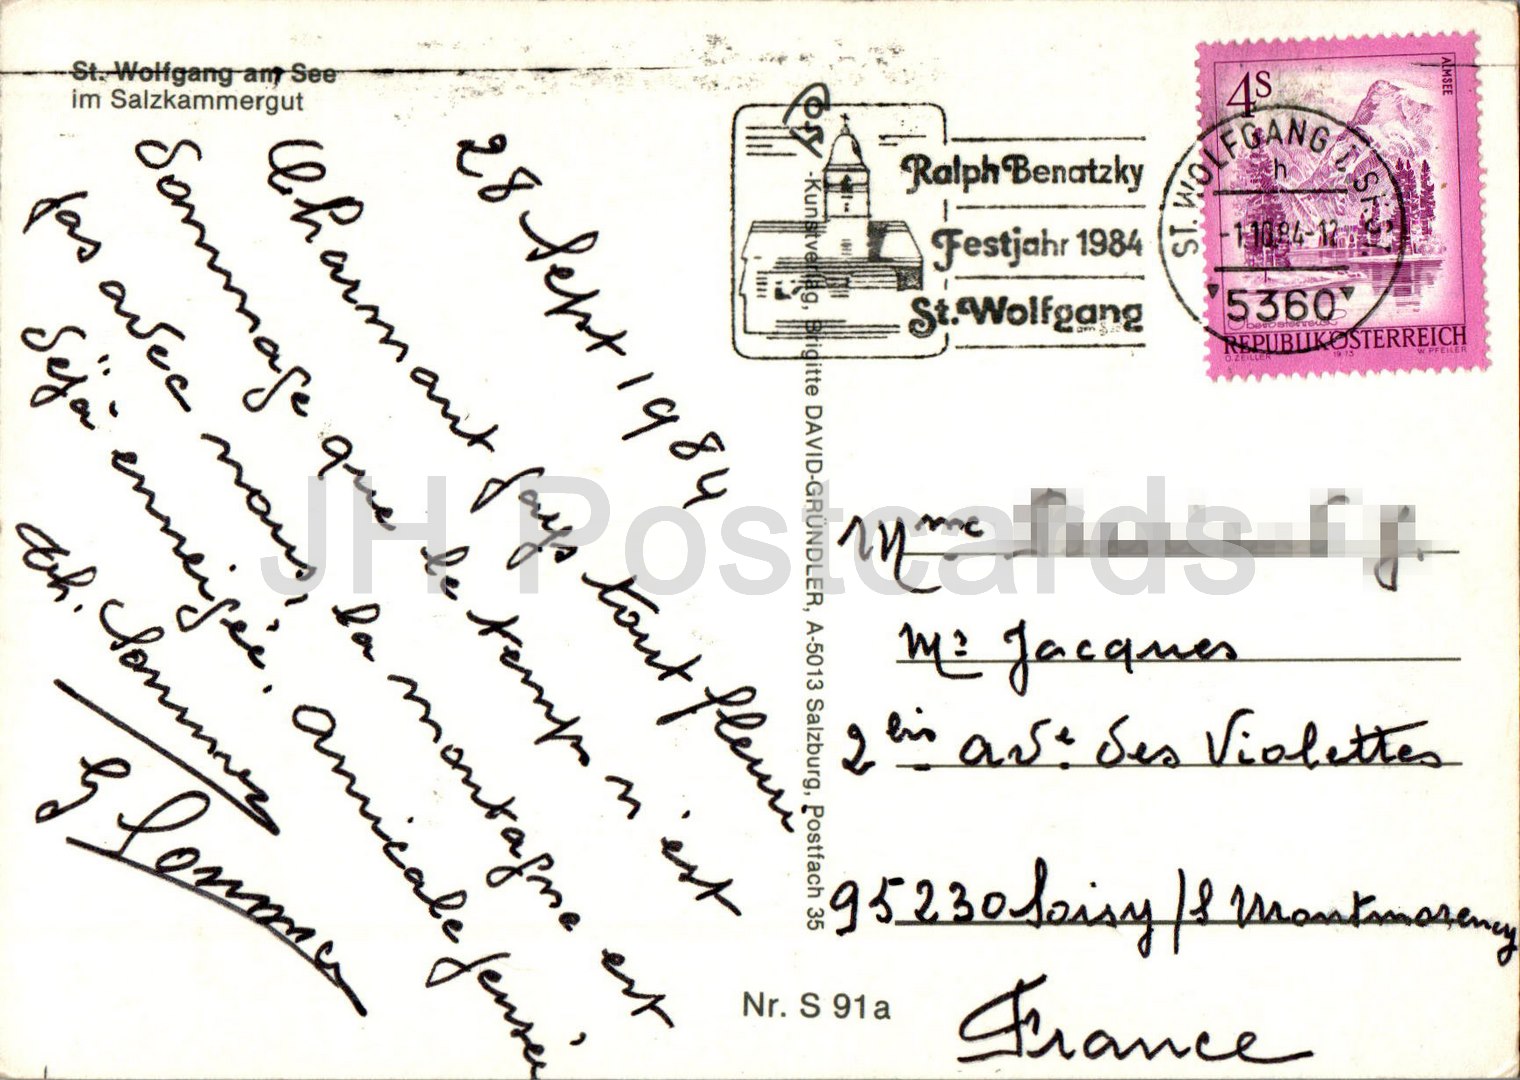 St. Wolfgang am See
im Salzkammergut
28 Sept 1984
Charmant pays tout fleuri
Dommage que le temps n'est
pas avec nous, la montagne est
déjà enneigée. Amicale pensée
G Sommer
Cosy-Kunstverlag, Brigitte DAVID-GRÜNDLER, A-5013 Salzburg, Postfach 35
Nr. S 91a
Ralph Benatzky
Festjahr 1984
St. Wolfgang
am See
ST. WOLFGANG
h
-1.10.84-12
5360
4S
ALMSEE
REPUBLIK ÖSTERREICH
O. ZEILLER 1973 W. PFEILER
Mme
Mr Jacques
2 bis ave des Violettes
95230 Soisy/s Montmorency
France
JH Postcards